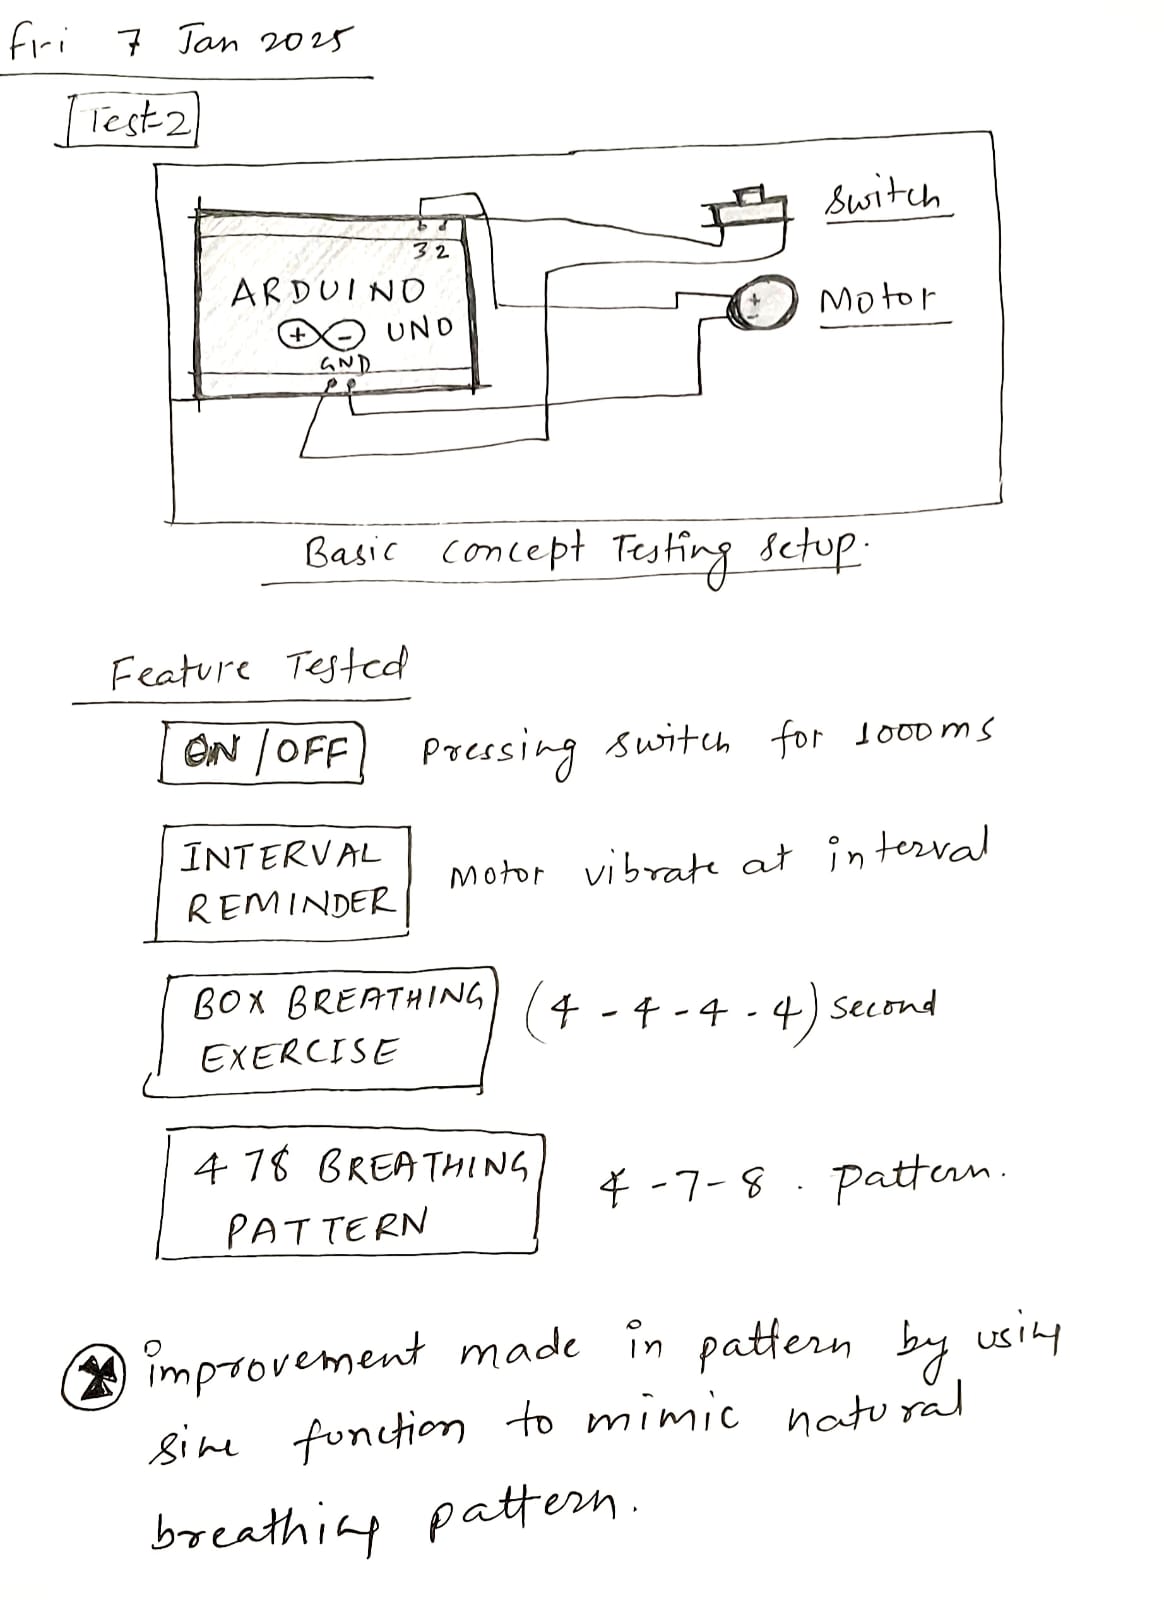 Fri 7 Jan 2025
Test-2
Switch
3 2
ARDUINO
Motor
+ -
+ - UNO
GND
Basic concept Testing setup.
Feature Tested
ON/OFF Pressing switch for 1000ms
INTERVAL
REMINDER Motor vibrate at interval
BOX BREATHING (4-4-4-4) second
EXERCISE
478 BREATHING 4-7-8. pattern.
PATTERN
improvement made in pattern by using
sine function to mimic natural
breathing pattern.